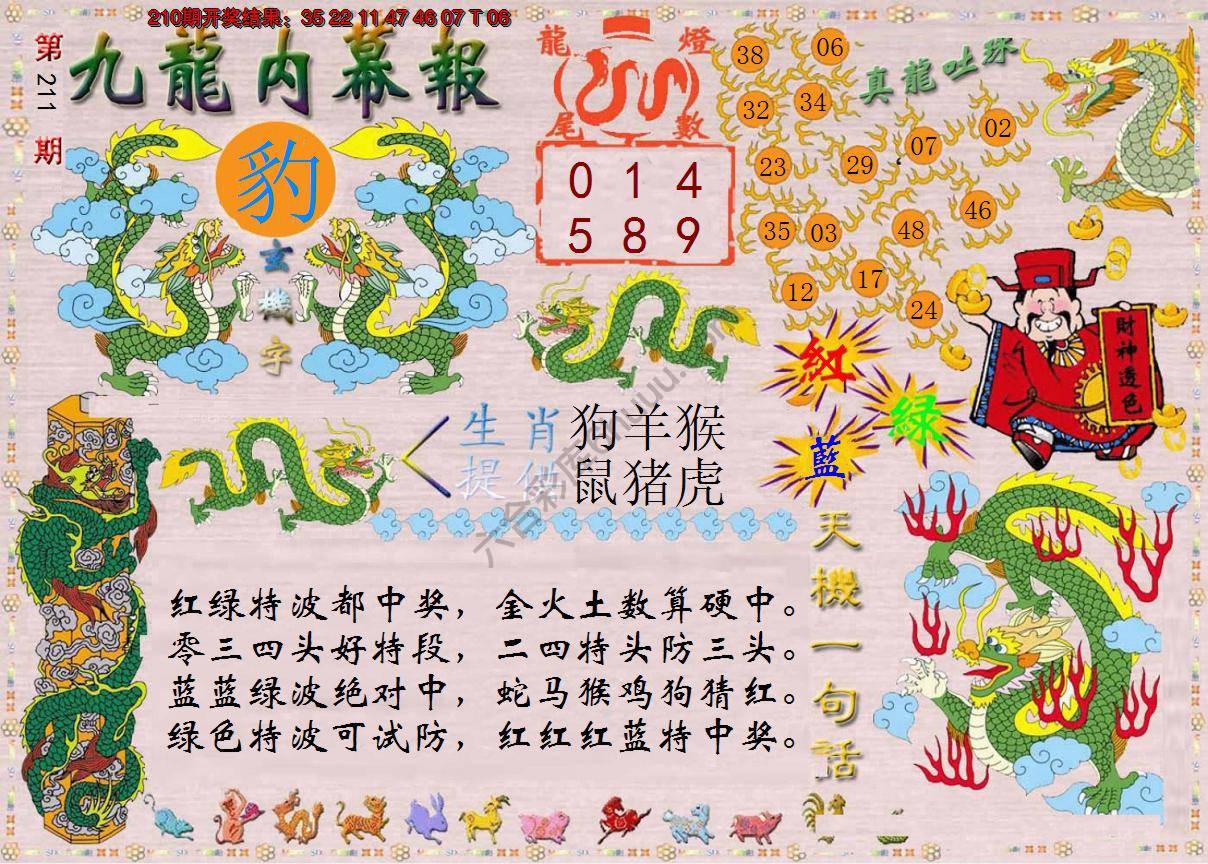 210期开奖结果：35 22 11 47 46 07 T 06
第211期
九龍内幕報
豹
玄機字
龍燈
尾數
0 1 4
5 8 9
真龍吐珠
38 06
32 34
23 29 07 02
35 03 48 46
12 17 24
財神透色
紅
綠
藍
生肖 狗羊猴
提供 鼠猪虎
天機一句話
红绿特波都中奖，金火土数算硬中。
零三四头好特段，二四特头防三头。
蓝蓝绿波绝对中，蛇马猴鸡狗猜红。
绿色特波可试防，红红红蓝特中奖。